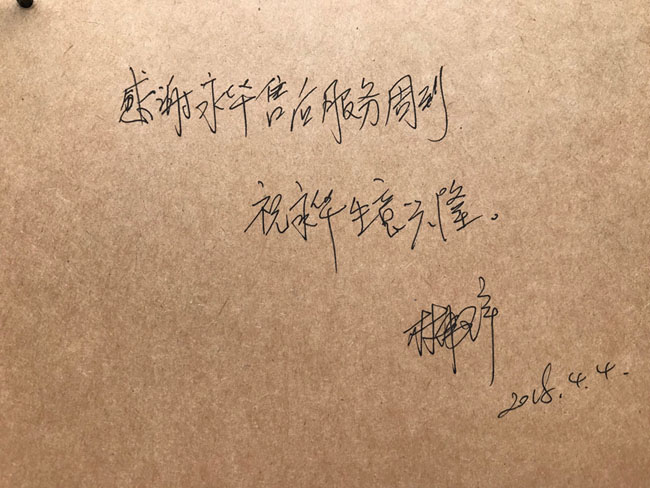 感谢永华售后服务周到
祝永华生意兴隆。
2018.4.4.